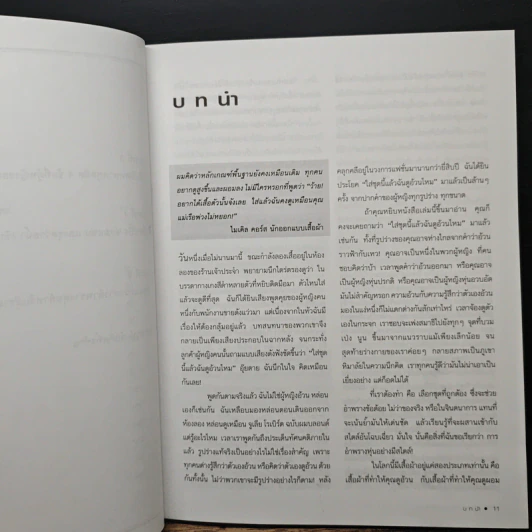 บทนำ
ผมคิดว่าหลักเกณฑ์พื้นฐานยังคงเหมือนเดิม ทุกคน
อยากดูสูงขึ้นและผอมลง ไม่มีใครหรอกที่พูดว่า “ว้าย!
อยากได้เสื้อตัวนั้นจังเลย ใส่แล้วฉันคงดูเหมือนคุณ
แม่เรียพ่วงไม่หยอก!”
ไมเคิล คอร์ส นักออกแบบเสื้อผ้า
วันหนึ่งเมื่อไม่นานมานี้ ขณะกำลังลองเสื้ออยู่ในห้อง
ลองของร้านเจ้าประจำ พยายามนึกไตร่ตรองดูว่า ใน
บรรดากางเกงสีดำหลายตัวที่หยิบติดมือมา ตัวไหนใส่
แล้วจะดูดีที่สุด ฉันก็ได้ยินเสียงพูดคุยของผู้หญิงคน
หนึ่งกับพนักงานขายดังแว่วมา แต่เนื่องจากในหัวฉันมี
เรื่องให้ต้องกลุ้มอยู่แล้ว บทสนทนาของพวกเขาจึง
กลายเป็นเพียงเสียงประกอบในฉากหลัง จนกระทั่ง
ลูกค้าผู้หญิงคนนั้นถามแบบเสียงดังฟังชัดขึ้นว่า “ใส่ชุด
นี้แล้วฉันดูอ้วนไหม” อุ๊ยตาย ฉันนึกในใจ คิดเหมือน
กันเลย!
พูดกันตามจริงแล้ว ฉันไม่ใช่ผู้หญิงอ้วน หล่อน
เองก็เช่นกัน ฉันเหลือบมองหล่อนตอนเดินออกจาก
ห้องลอง หล่อนดูเหมือน จูเลีย โรเบิร์ต ฉบับผมบลอนด์
แต่รู้อะไรไหม เวลาเราพูดกันถึงประเด็นทัศนคติภายใน
แล้ว รูปร่างแท้จริงเป็นอย่างไรไม่ใช่เรื่องสำคัญ เพราะ
ทุกคนต่างรู้สึกว่าตัวเองอ้วน หรือคิดว่าตัวเองดูอ้วน ด้วย
กันทั้งนั้น ไม่ว่าพวกเขาจะมีรูปร่างอย่างไรก็ตาม! หลัง
คลุกคลีอยู่ในวงการแฟชั่นมานานกว่ายี่สิบปี ฉันได้ยิน
ประโยค “ใส่ชุดนี้แล้วฉันดูอ้วนไหม” มาแล้วเป็นล้านๆ
ครั้ง จากปากของผู้หญิงทุกรูปร่าง ทุกขนาด
ถ้าคุณหยิบหนังสือเล่มนี้ขึ้นมาอ่าน คุณก็
คงจะเคยถามว่า “ใส่ชุดนี้แล้วฉันดูอ้วนไหม” มาแล้ว
เช่นกัน ทั้งที่รูปร่างของคุณอาจห่างไกลจากคำว่าอ้วน
ราวฟ้ากับเหว! คุณอาจเป็นหนึ่งในพวกผู้หญิง ที่คน
ชอบคิดว่าบ้า เวลาพูดคำว่าอ้วนออกมา หรือคุณอาจ
เป็นผู้หญิงหุ่นปกติ หรือคุณอาจเป็นผู้หญิงหุ่นอวบอัด
มันไม่สำคัญหรอก ความอ้วนกับความรู้สึกว่าตัวเองอ้วน
มองในแง่หนึ่งก็ไม่แตกต่างกันสักเท่าไหร่ เวลาจ้องดูตัว
เองในกระจก เราชอบจะเพ่งสมาธิไปยังทุกๆ จุดที่บวม
เป่ง นูน ขึ้นมาจากแนวราบแม้เพียงเล็กน้อย จน
สุดท้ายร่างกายของเราค่อยๆ กลายสภาพเป็นภูเขา
หิมาลัยในความนึกคิด เราทุกคนรู้ดีว่ามันไม่น่าเอาเป็น
เยี่ยงอย่าง แต่ก็อดไม่ได้
ที่เราต้องทำ คือ เลือกชุดที่ถูกต้อง ซึ่งจะช่วย
อำพรางข้อด้อย ไม่ว่าของจริง หรือในจินตนาการ แทนที่
จะเน้นย้ำมันให้เด่นชัด แล้วเรียนรู้ที่จะผสานเข้ากับ
สไตล์อันโฉบเฉี่ยว มั่นใจ นั่นคือสิ่งที่ฉันขอเรียกว่า การ
อำพรางหุ่นอย่างมีสไตล์!
ในโลกนี้มีเสื้อผ้าอยู่แค่สองประเภทเท่านั้น คือ
เสื้อผ้าที่ทำให้คุณดูอ้วน กับเสื้อผ้าที่ทำให้คุณดูผอม
บทนำ • 11